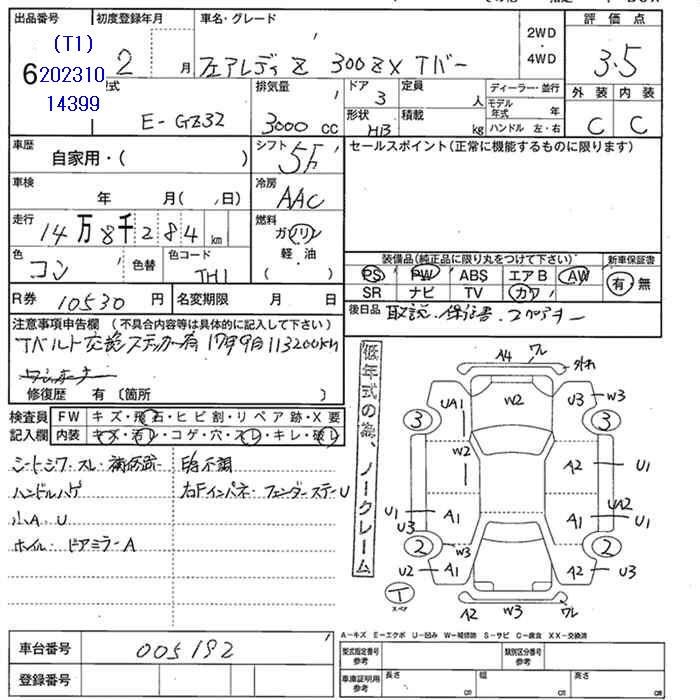 出品番号 初度登録年月 車名・グレード 評価点
(T1)
6 202310 2 月 フェアレディ Z 300ZX Tバー 2WD 4WD 3.5
14399
型式 排気量 ドア 3 定員 人 ディーラー・並行 外装 内装
E-GZ32 3000 cc 形状 HB 積載 kg モデル年式 年 C C
ハンドル 左・右
車歴 シフト 5F セールスポイント(正常に機能するものに限ります)
自家用・( )
車検 年 月( 日) 冷房 AAC
走行 14万8千284km 燃料 ガソリン
軽・油
( )
色 コン 色替 色コード TH1
装備品(純正品に限り丸をつけて下さい) 新車保証書
PS PW ABS エアB AW 有・無
SR ナビ TV カワ
R券 10530 円 名変期限 月 日
後日品 取説・保証書・スペアキー
注意事項申告欄 (不具合内容等は具体的に記入して下さい)
Tベルト交換ステッカー有 17年9月113200km
修復歴 有 (箇所 )
検査員 FW キズ・飛石・ヒビ割・リペア跡・X要
記入欄 内装 キズ・汚レ・コゲ・穴・スレ・キレ・破レ
シートシワ・スレ・補修跡
ハンドルハゲ 右Fインパネ・フェンダーステーU
小A・U
ホイル・ドアミラーA
低年式の為、ノークレーム
A4 ワレ 外れ
UA1 W2 U3 W3
3 3
W2 A2 U1
U1 A1 A1 UA2 U1
U3
2 W3 2
U2 A1 A2 U3
T スペア
A2 W3 ワレ
A-キズ E-エクボ U-凹み W-補修跡 S-サビ C-腐食 XX-交換済
車台番号 005192 型式指定番号 参考 類別区分番号 参考
登録番号 車庫証明用 参考 長さ cm 幅 cm 高さ cm